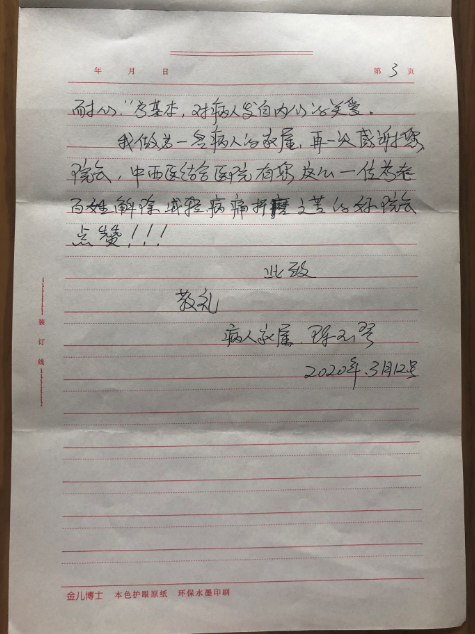 年 月 日 第 3 页
耐心"为基本，对病人发自内心的关爱。
我做为一名病人的家属，再一次感谢
院长，中西医结合医院有 一位为老
百姓解除减轻病痛折磨之苦的好院长
点赞！！！
此致
敬礼
病人家属
2020年.3月12号
装订线
金儿博士 本色护眼原纸 环保水墨印刷